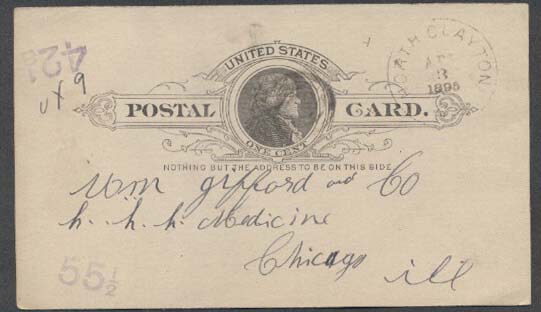 42
UNITED STATES
NORTH CLAYTON
3
1895
9
POSTAL CARD.
ONE CENT
NOTHING BUT THE ADDRESS TO BE ON THIS SIDE
Wm Gifford and Co
h. h. h. Medicine
Chicago ill
55 1/2